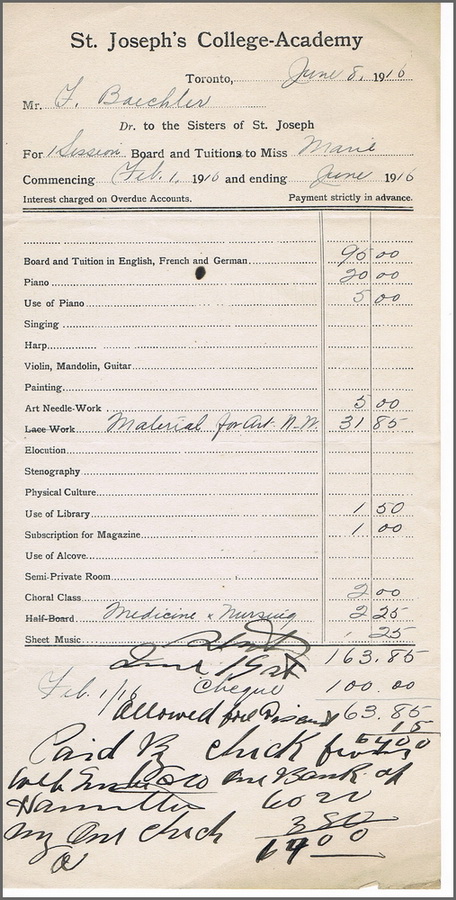 St. Joseph's College-Academy
Toronto, June 8, 1916
Mr. F. Baechler
Dr. to the Sisters of St. Joseph
For 1 Session Board and Tuitions to Miss Marie
Commencing Feb. 1, 1916 and ending June 1916
Interest charged on Overdue Accounts. Payment strictly in advance.
Board and Tuition in English, French and German 95 00
Piano 20 00
Use of Piano 5 00
Singing
Harp
Violin, Mandolin, Guitar
Painting
Art Needle-Work 5 00
Lace Work Material for Art N.W. 31 85
Elocution
Stenography
Physical Culture
Use of Library 1 50
Subscription for Magazine 1 00
Use of Alcove
Semi-Private Room
Choral Class 2 00
Half-Board Medicine & Nursing 2 25
Sheet Music 25
June 19 163.85
Feb. 1/16 Cheque 100.00
Allowed for 63.85
15
Paid By Check 64 00
Bank of
Hamilton 60 20
my own check 3 80
64 00